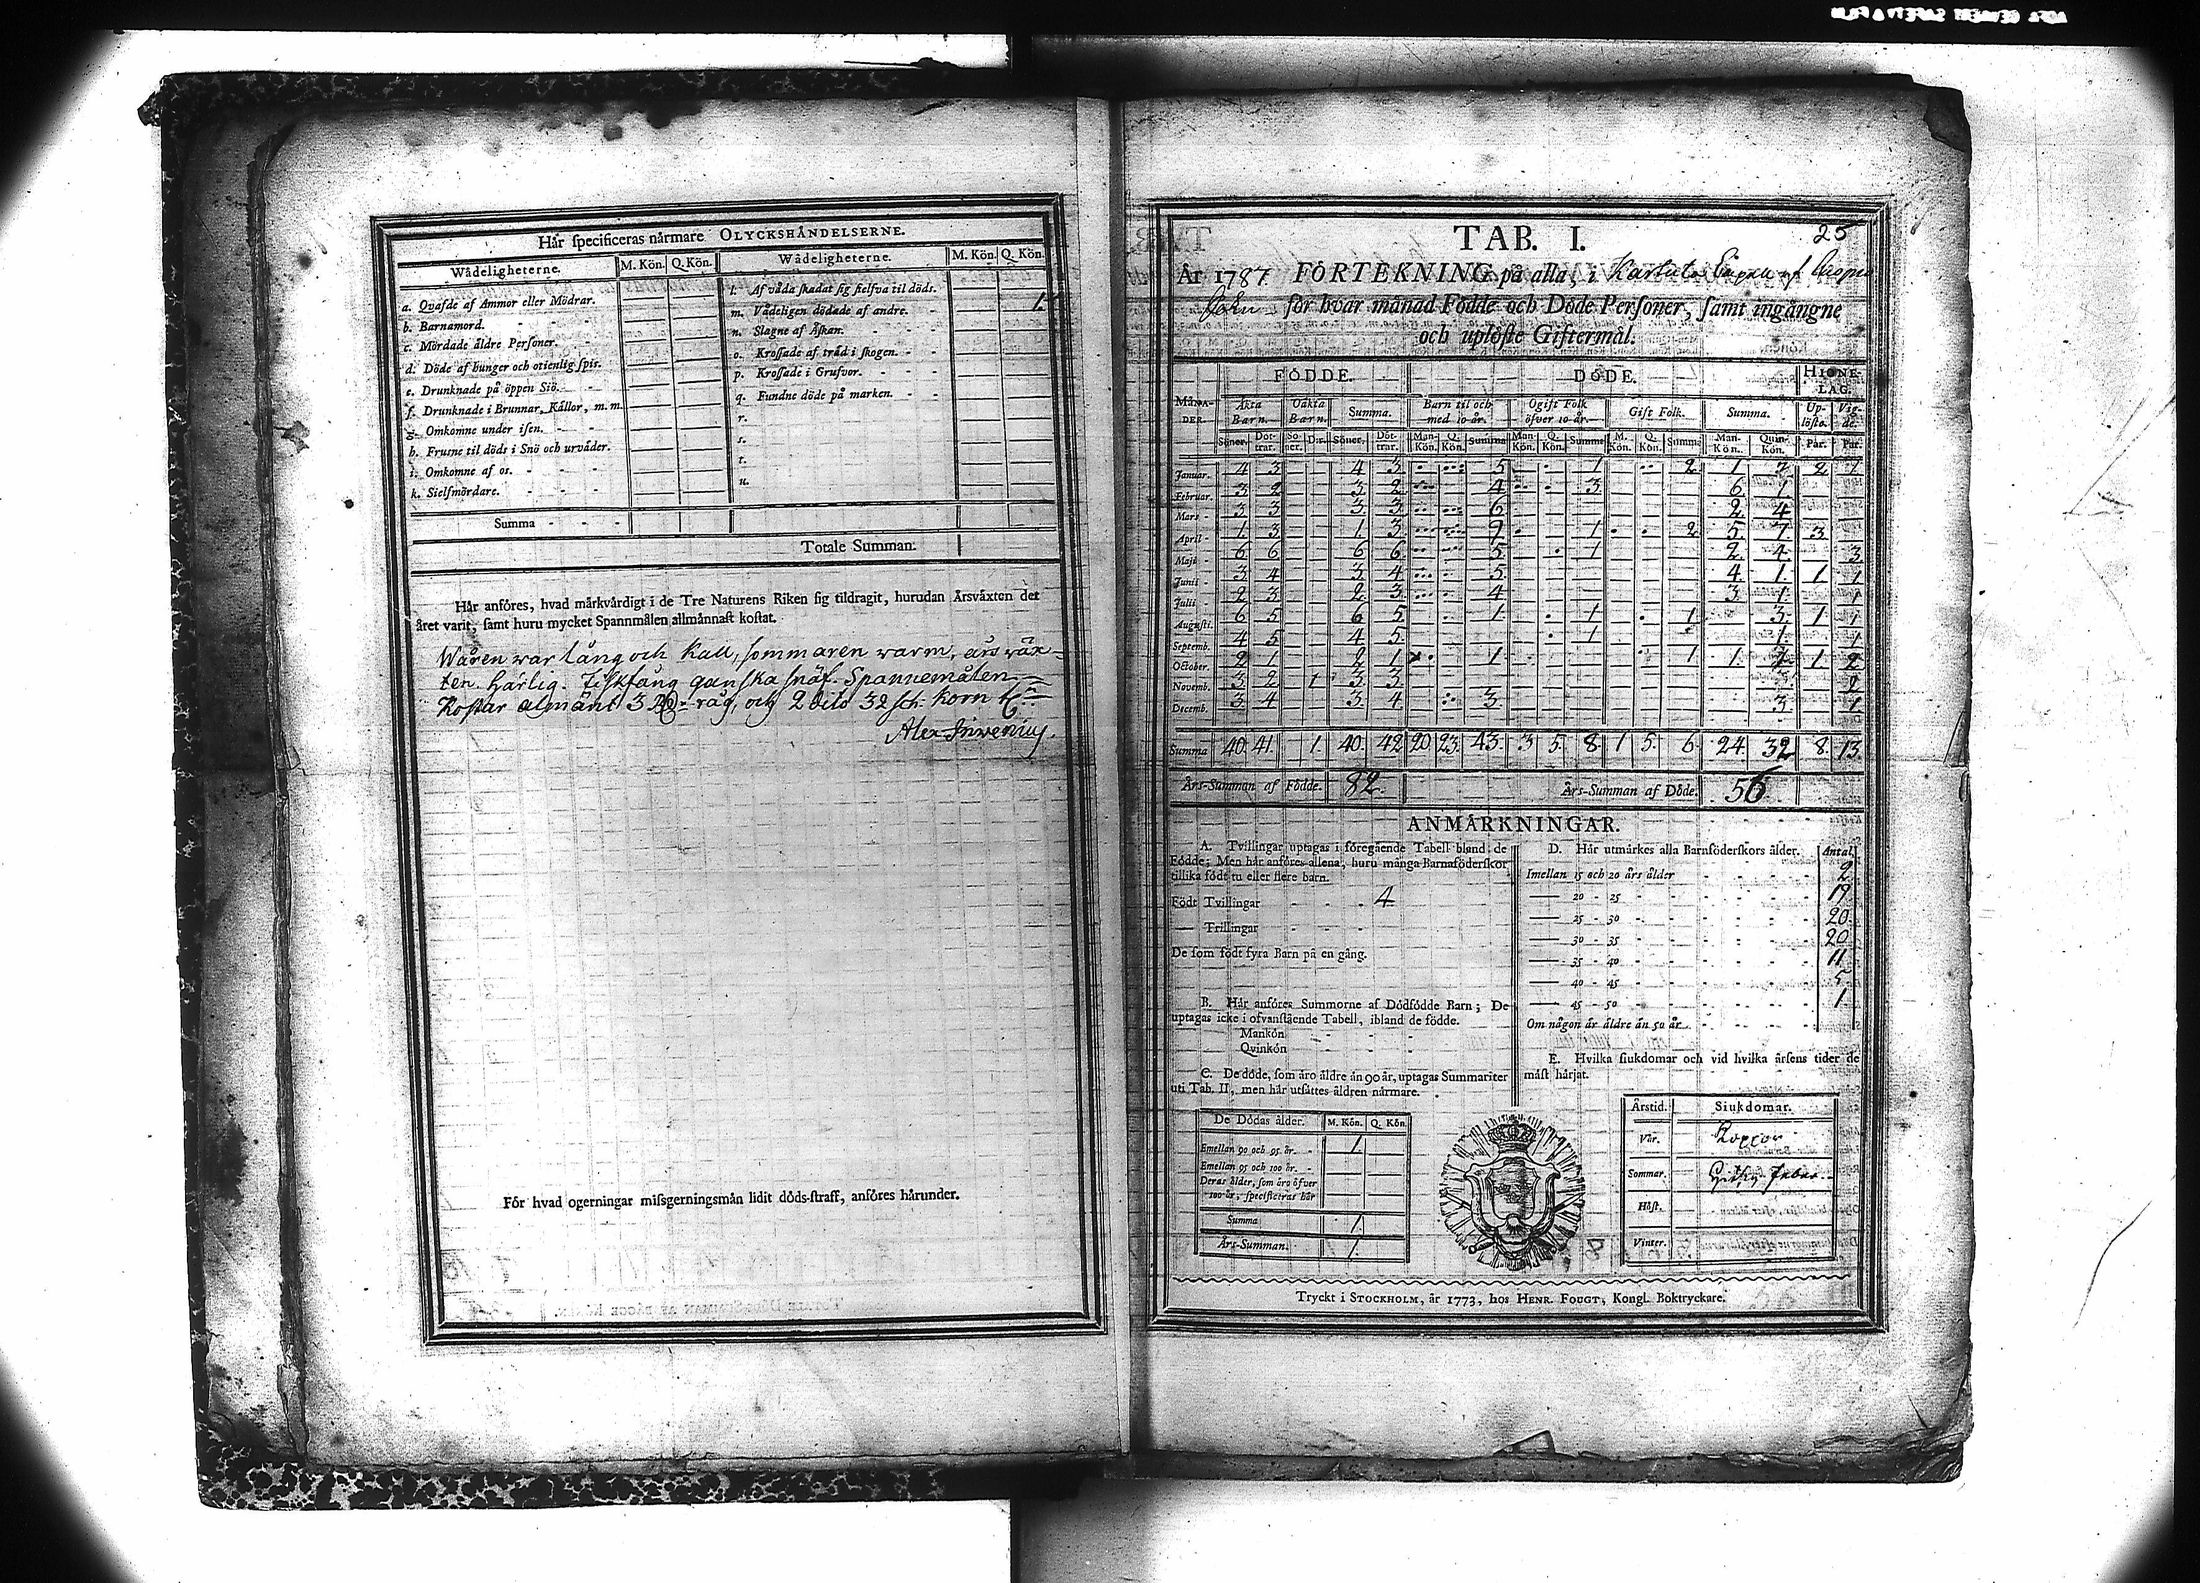 Här specificeras närmare OLYCKSHÄNDELSERNE.
Wådeligheterne. M. Kön. Q. Kön. Wådeligheterne. M. Kön. Q. Kön.
a. Qvafde af Ammor eller Mödrar. l. Af våda skadat sig sielfva til döds.
b. Barnamord. m. Vådeligen dödade af andre. 1.
c. Mördade äldre Personer. n. Slagne af Åskan.
d. Döde af hunger och otienlig spis. o. Krossade af träd i skogen.
e. Drunknade på öppen Siö. p. Krossade i Grufvor.
f. Drunknade i Brunnar, Källor, m.m. q. Fundne döde på marken.
g. Omkomne under isen. r.
h. Frusne til döds i Snö och urväder. s.
i. Omkomne af os. t.
k. Sielfmördare. u.
Summa
Totale Summan.
Här anföres, hvad märkvärdigt i de Tre Naturens Riken sig tildragit, hurudan Årsväxten det
året varit, samt huru mycket Spannmålen allmännast kostat.
Wåren war lång och kall, sommaren warm, års wäx-
ten härlig. Fiskfång ganska snäf. Spannemålen
kostar almänt 3 råg, och 2 dito 32 sch: korn
Alex
För hvad ogerningar missgerningsmän lidit döds-straff, anföres härunder.
25
TAB. I.
År 1787 FÖRTEKNING på alla, i Karstula Capell af
för hvar månad Födde och Döde Personer, samt ingångne
och uplöste Giftermål.
FÖDDE. DÖDE. HIONE-LAG.
MÅNA-DER. Äkta Barn. Oäkta Barn. Summa. Barn til och med 10 år. Ogift Folk öfver 10 år. Gift Folk. Summa. Up-löste. Vig-de.
Söner. Döt-trar. Sö-ner. D:r. Söner. Döt-trar. Man-Kön. Q. Kön. Summa Man-Kön. Q. Kön. Summa M. Kön. Q. Kön. Summa Man-Kön. Quin-Kön. Par. Par.
Januar. 4 3 4 3 5 1 2 1 7 2
Februar. 3 2 3 2 4 3 6 1
Mars 3 3 3 3 6 2 4
April 1 3 1 3 9 1 2 5 7 3
Maji 6 6 6 6 5 1 2 4 3
Junii 3 4 3 4 5 4 1 1 1
Julii 2 3 2 3 4 3 1 1
Augusti. 6 5 6 5 1 1 1 3 1 1
Septemb. 4 5 4 5 1 1 1
October. 2 1 2 1 1 1 1 1 2
Novemb. 3 2 1 3 3 2
Decemb. 3 4 3 4 3 3 1
Summa 40. 41. 1. 40. 42 20 23. 43. 3 5. 8. 1 5. 6. 24. 32 8. 13.
Års-Summan af Födde. 82. Års-Summan af Döde. 56.
ANMÄRKNINGAR.
A. Tvillingar uptagas i föregående Tabell bland de
Födde; Men här anföres allena, huru många Barnaföderskor
tillika födt tu eller flere barn.
Födt Tvillingar 4.
Trillingar
De som födt fyra Barn på en gång.
B. Här anföres Summorne af Dödfödde Barn; De
uptagas icke i ofvanstående Tabell, ibland de födde.
Mankön
Qvinkön
C. De döde, som äro äldre än 90 år, uptagas Summariter
uti Tab. II, men här utsättes åldren närmare.
De Dödas ålder. M. Kön. Q. Kön.
Emellan 90 och 95 år. 1.
Emellan 95 och 100 år.
Deras ålder, som äro öfver
100 år, specificeras här
Summa 1.
Års-Summan. 1.
D. Här utmärkes alla Barnföderskors ålder. Antal.
Imellan 15 och 20 års ålder 2
20 - 25 19.
25 - 30 20.
30 - 35 20
35 - 40 11
40 - 45 5
45 - 50 1.
Om någon är äldre än 50 år
E. Hvilka siukdomar och vid hvilka årsens tider de
mäst härjat.
Årstid. Siukdomar.
Vår. Koppor
Sommar. Feber
Höst.
Vinter.
Tryckt i STOCKHOLM, år 1773, hos HENR. FOUGT, Kongl. Boktryckare.